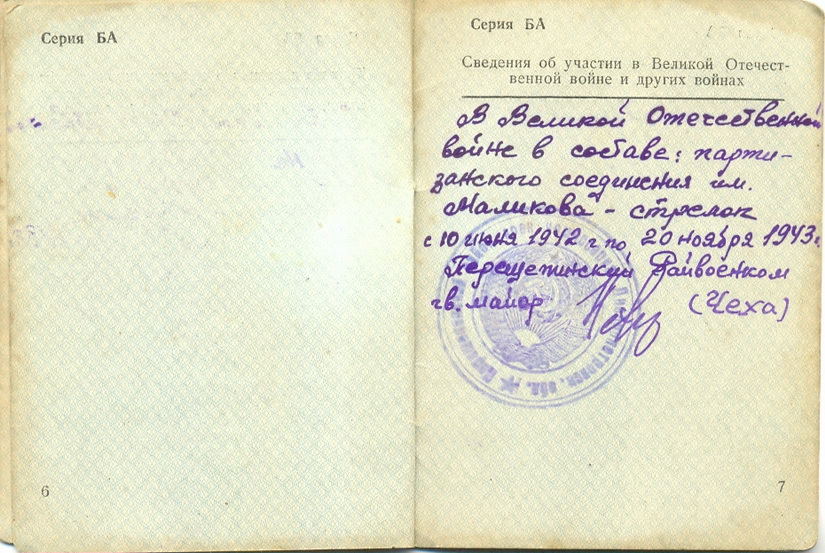 Серия БА
6
Серия БА
Сведения об участии в Великой Отечест-
венной войне и других войнах
В Великой Отечественной
войне в составе: парти-
занского соединения им.
Маликова - стрелок
с 10 июня 1942 г по 20 ноября 1943 г.
Райвоенком
гв. майор (Чеха)
7